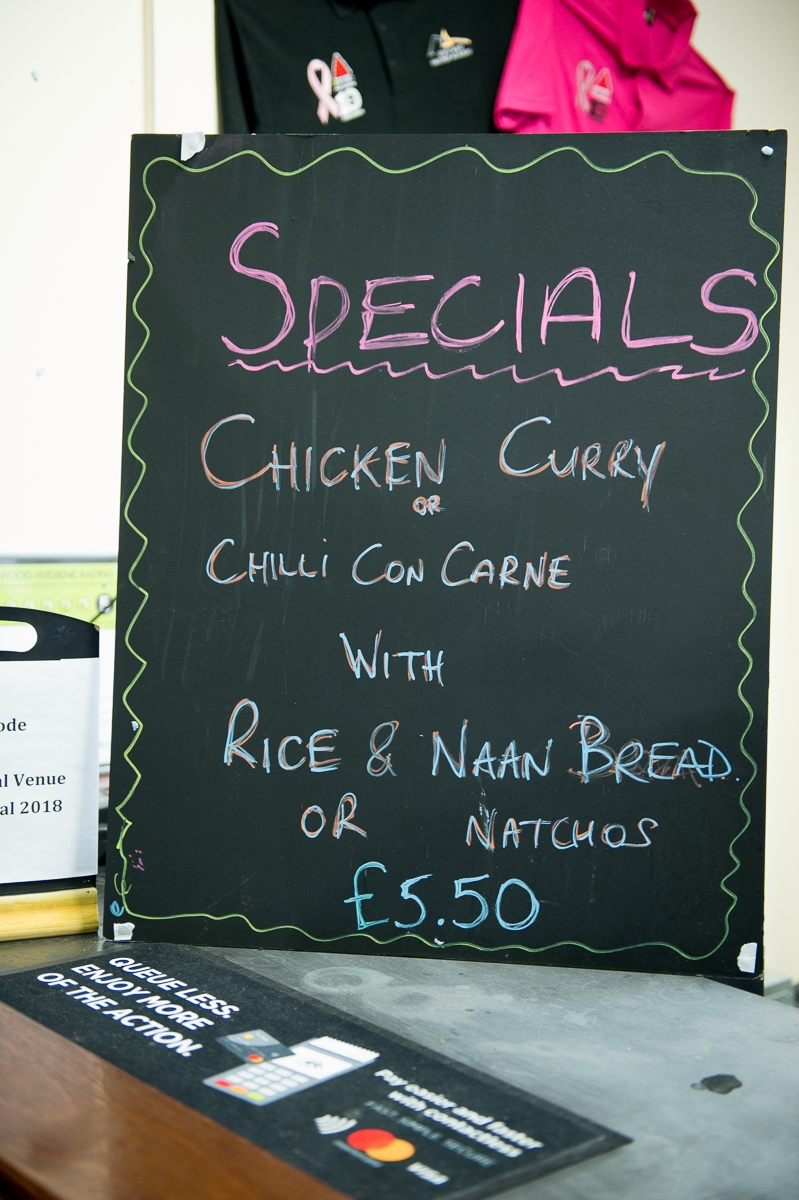 SPECIALS
CHICKEN CURRY
OR
CHILLi CON CARNE
WITH
RICE & NAAN BREAD.
OR NATCHOS
£5.50
FOOD HYGIENE
ode
al Venue
al 2018
QUEUE LESS.
ENJOY MORE
OF THE ACTION.
Pay easier and faster
with contactless
VISA